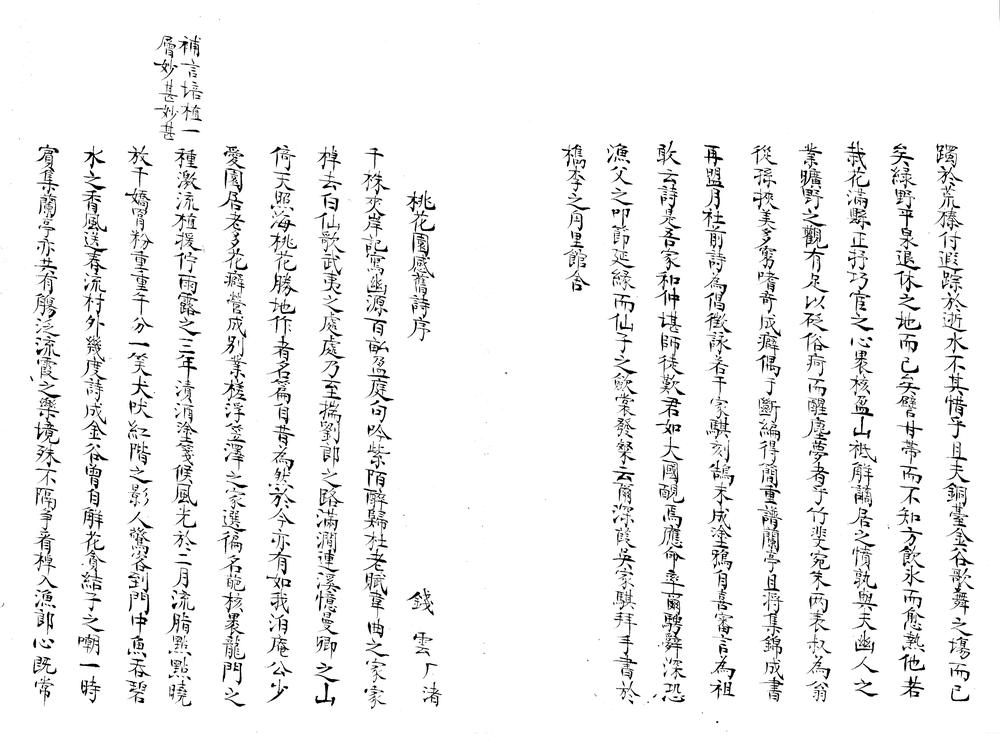 躅於荒榛付遐踪於逝水不其惜乎且夫銅臺金谷歌舞之塲而已
矣緑野平泉退休之地而已矣譬甘帶而不知方飲氷而愈熱他若
栽花滿縣正抒巧宦之心褁核盈山祇解謫居之憤孰與夫幽人之
業曠野之觀有足以砭俗疴而醒塵夢者乎竹斐宛朱兩表叔為翁
從孫挾美多窮嗜奇成癖偶于斷編得簡重譜蘭亭且将集錦成書
再盟月社前詩為倡徵詠若干家騏刻鵠未成塗鴉自喜審言為祖
敢云詩是吾家和仲堪師徒歎君如大國覥焉應命率爾騁辭深恐
漁父之叩節延緣而仙子之歛裳發粲云爾深葭吳家騏拜手書於
檇李之月里館舍
桃花園感舊詩序
錢雲厂渚
千株夾岸記寫幽源百畝盈庭句吟紫陌醉歸杜老賦韋曲之家家
棹去白仙歌武夷之處處乃至擕劉郎之路滿澗連溪憶曼卿之山
倚天照海桃花勝地作者名篇自昔為然於今亦有如我泊庵公少
愛園居老多花癖營成別業槎浮笠澤之家選徧名葩核褁龍門之
種激流植援佇雨露之三年漬涓塗箋候風光於二月流脂點點曉
放千嬌罥粉重重午分一笑犬吠紅階之影人驚客到門中魚吞碧
水之香風送春流村外幾度詩成金谷曾自解花貪結子之嘲一時
賓集蘭亭亦共有觴泛流霞之樂境殊不隔爭看棹入漁郎心既常
補言培植一
層妙甚妙甚